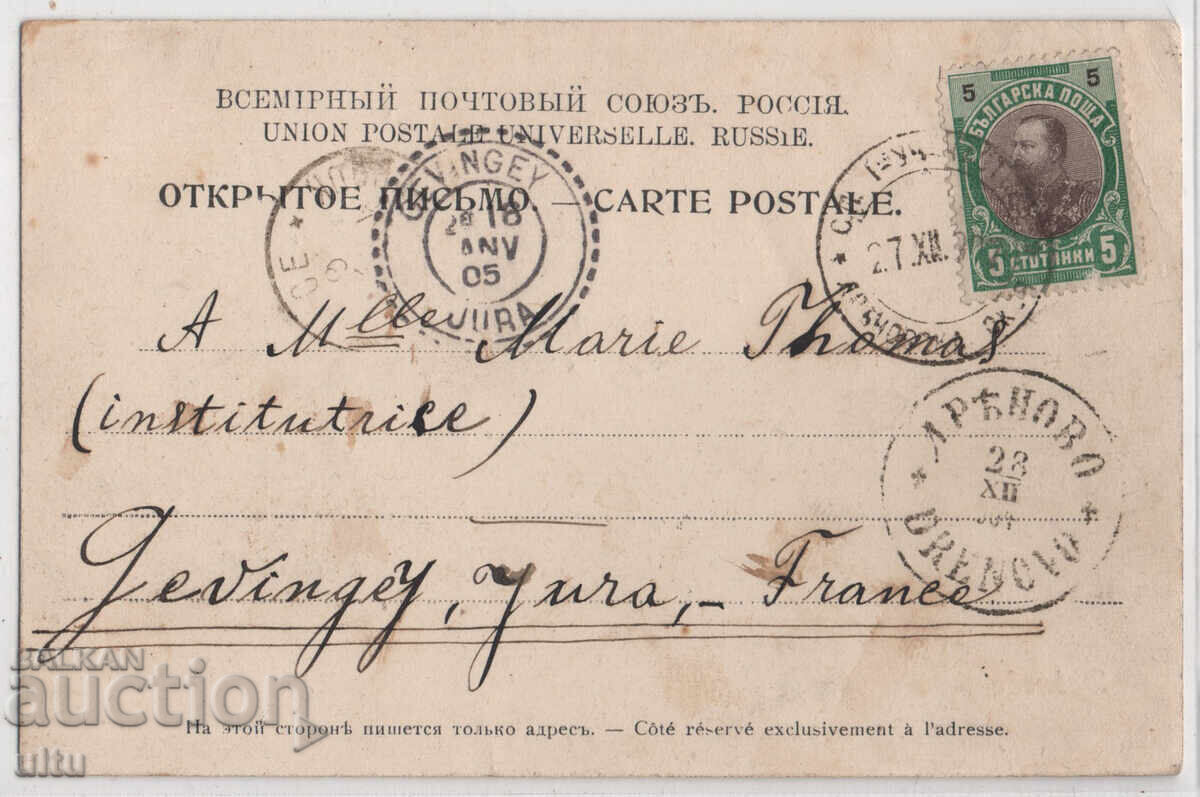 ВСЕМІРНЫЙ ПОЧТОВЫЙ СОЮЗЪ. РОССІЯ.
UNION POSTALE UNIVERSELLE. RUSSIE.
ОТКРЫТОЕ ПИСЬМО. — CARTE POSTALE.
5 5
БЪЛГАРСКА ПОЩА
5 СТОТИНКИ 5
GEVINGEY
18
JANV
05
JURA
27.XII.
A Mlle Marie Thomas
(institutrice)
Gevingey, Jura, – France
ДРѢНОВО
28
XII
DRENOVO
BALKAN
auction
На этой сторонѣ пишется только адресъ. — Côté réservé exclusivement à l'adresse.
ultu